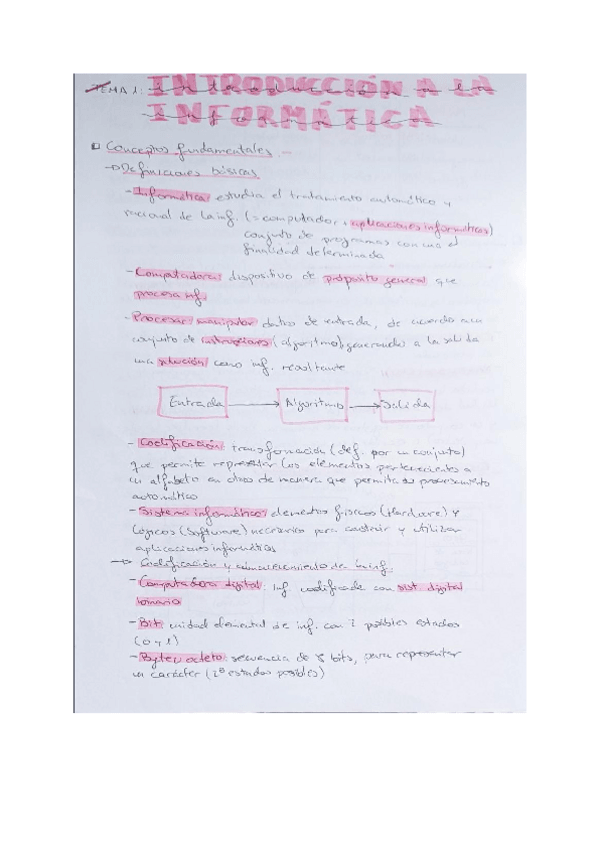 TEMA 1: INTRODUCCIÓN A LA
INFORMÁTICA
Conceptos fundamentales.
→ Definiciones básicas
- Informática: estudia el tratamiento automático y
racional de la inf. (= computador + aplicaciones informáticas)
conjunto de programas con una
finalidad determinada
- Computadora: dispositivo de propósito general que
procesa inf.
- Procesar: manipular datos de entrada, de acuerdo a un
conjunto de instrucciones (algoritmo), generando a la salida
una solución como inf. resultante
Entrada → Algoritmo → Salida
- Codificación: transformación (def. por un conjunto)
que permite representar los elementos pertenecientes a
un alfabeto en otros de manera que permita su procesamiento
automático
- Sistema informático: elementos físicos (Hardware) y
lógicos (Software) necesarios para construir y utilizar
aplicaciones informáticas
→ Codificación y almacenamiento de la inf.
- Computadora digital: inf codificada con sist. digital
binario
- Bit: unidad elemental de inf. con 2 posibles estados
(0 y 1)
- Byte u octeto: secuencia de 8 bits, para representar
un carácter (2⁸ estados posibles)